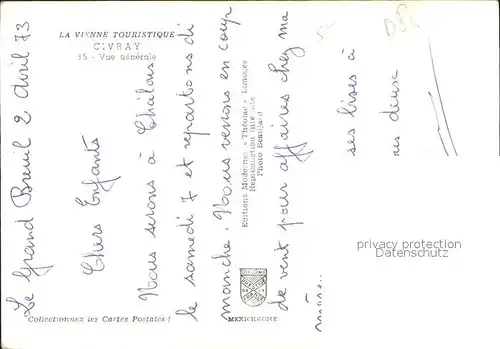 LA VIENNE TOURISTIQUE
CIVRAY
15 - Vue générale
Le Grand Breuil 2 avril 73
Chers Enfants
Nous serons à Châlons
le samedi 7 et repartons di
manche. Nous venons en coup
de vent pour affaires chez ma
mère..
ses bises à
ous deux
Editions Modernes « Théojac » Limoges
Reproduction interdite
Photo Beaujard
privacy protection
Collectionnez les Cartes Postales !
MEXICHROME